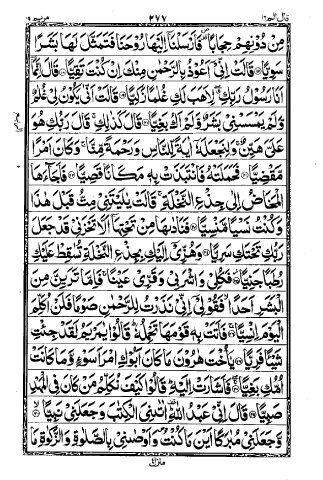 قال الم ١٦ ٢٧٧ مريم ١٩
مِنْ دُوْنِهِمْ حِجَابًا فَاَرْسَلْنَاۤ اِلَيْهَا رُوْحَنَا فَتَمَثَّلَ لَهَا بَشَرًا
سَوِيًّا ۝ قَالَتْ اِنِّيْۤ اَعُوْذُ بِالرَّحْمٰنِ مِنْكَ اِنْ كُنْتَ تَقِيًّا ۝ قَالَ اِنَّمَاۤ
اَنَا رَسُوْلُ رَبِّكِ لِاَهَبَ لَكِ غُلٰمًا زَكِيًّا ۝ قَالَتْ اَنّٰى يَكُوْنُ لِيْ غُلٰمٌ
وَّلَمْ يَمْسَسْنِيْ بَشَرٌ وَّلَمْ اَكُ بَغِيًّا ۝ قَالَ كَذٰلِكِ قَالَ رَبُّكِ هُوَ
عَلَيَّ هَيِّنٌ وَلِنَجْعَلَهٗۤ اٰيَةً لِّلنَّاسِ وَرَحْمَةً مِّنَّا وَكَانَ اَمْرًا
مَّقْضِيًّا ۝ فَحَمَلَتْهُ فَانْتَبَذَتْ بِهٖ مَكَانًا قَصِيًّا ۝ فَاَجَآءَهَا
الْمَخَاضُ اِلٰى جِذْعِ النَّخْلَةِ قَالَتْ يٰلَيْتَنِيْ مِتُّ قَبْلَ هٰذَا
وَكُنْتُ نَسْيًا مَّنْسِيًّا ۝ فَنَادٰىهَا مِنْ تَحْتِهَاۤ اَلَّا تَحْزَنِيْ قَدْ جَعَلَ
رَبُّكِ تَحْتَكِ سَرِيًّا ۝ وَهُزِّيْۤ اِلَيْكِ بِجِذْعِ النَّخْلَةِ تُسٰقِطْ عَلَيْكِ
رُطَبًا جَنِيًّا ۝ فَكُلِيْ وَاشْرَبِيْ وَقَرِّيْ عَيْنًا فَاِمَّا تَرَيِنَّ مِنَ
الْبَشَرِ اَحَدًا فَقُوْلِيْۤ اِنِّيْ نَذَرْتُ لِلرَّحْمٰنِ صَوْمًا فَلَنْ اُكَلِّمَ
الْيَوْمَ اِنْسِيًّا ۝ فَاَتَتْ بِهٖ قَوْمَهَا تَحْمِلُهٗ قَالُوْا يٰمَرْيَمُ لَقَدْ جِئْتِ
شَيْئًا فَرِيًّا ۝ يٰۤاُخْتَ هٰرُوْنَ مَا كَانَ اَبُوْكِ امْرَاَ سَوْءٍ وَّمَا كَانَتْ
اُمُّكِ بَغِيًّا ۝ فَاَشَارَتْ اِلَيْهِ قَالُوْا كَيْفَ نُكَلِّمُ مَنْ كَانَ فِي الْمَهْدِ
صَبِيًّا ۝ قَالَ اِنِّيْ عَبْدُ اللّٰهِ اٰتٰىنِيَ الْكِتٰبَ وَجَعَلَنِيْ نَبِيًّا ۝
وَّجَعَلَنِيْ مُبٰرَكًا اَيْنَ مَا كُنْتُ وَاَوْصٰنِيْ بِالصَّلٰوةِ وَالزَّكٰوةِ مَا
منزل